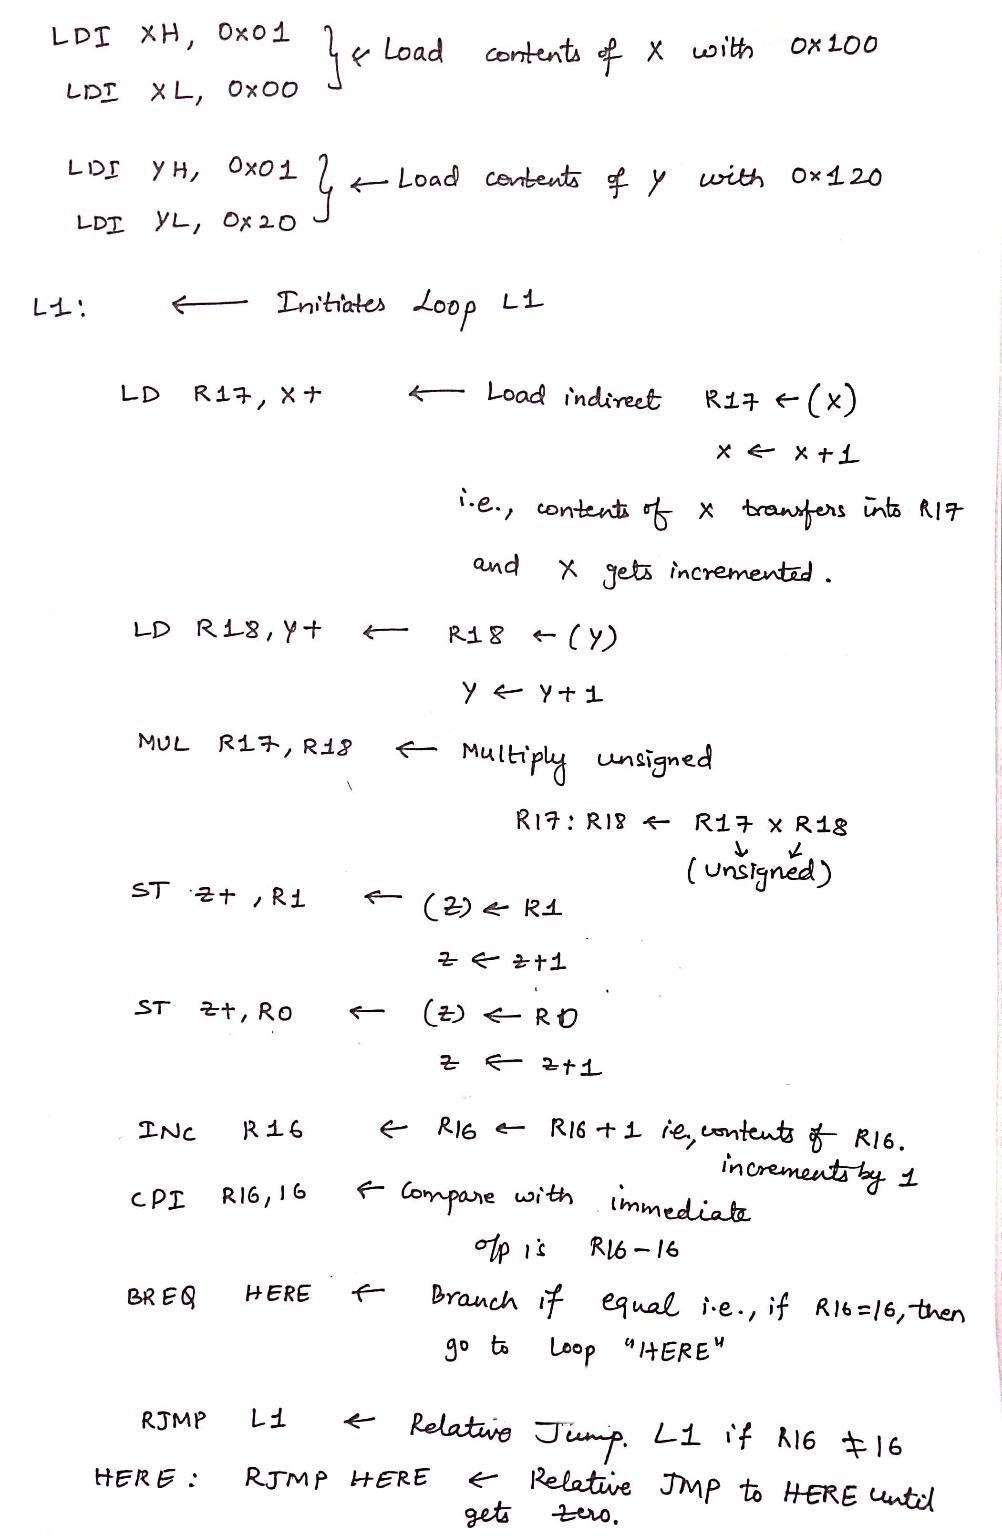 LDI XH, 0x01
LDI XL, 0x00
} ← Load contents of X with 0x100
LDI YH, 0x01
LDI YL, 0x20
} ← Load contents of Y with 0x120
L1: ← Initiates Loop L1
LD R17, X+ ← Load indirect R17 ← (X)
X ← X+1
i.e., contents of X transfers into R17
and X gets incremented.
LD R18, Y+ ← R18 ← (Y)
Y ← Y+1
MUL R17, R18 ← Multiply unsigned
R17: R18 ← R17 x R18
↓ ↙
(unsigned)
ST Z+, R1 ← (Z) ← R1
Z ← Z+1
ST Z+, R0 ← (Z) ← R0
Z ← Z+1
INC R16 ← R16 ← R16 + 1 ie, contents of R16.
increments by 1
CPI R16, 16 ← Compare with immediate
o/p is R16 - 16
BREQ HERE ← Branch if equal i.e., if R16=16, then
go to Loop "HERE"
RJMP L1 ← Relative Jump. L1 if R16 ≠ 16
HERE: RJMP HERE ← Relative JMP to HERE until
gets zero.